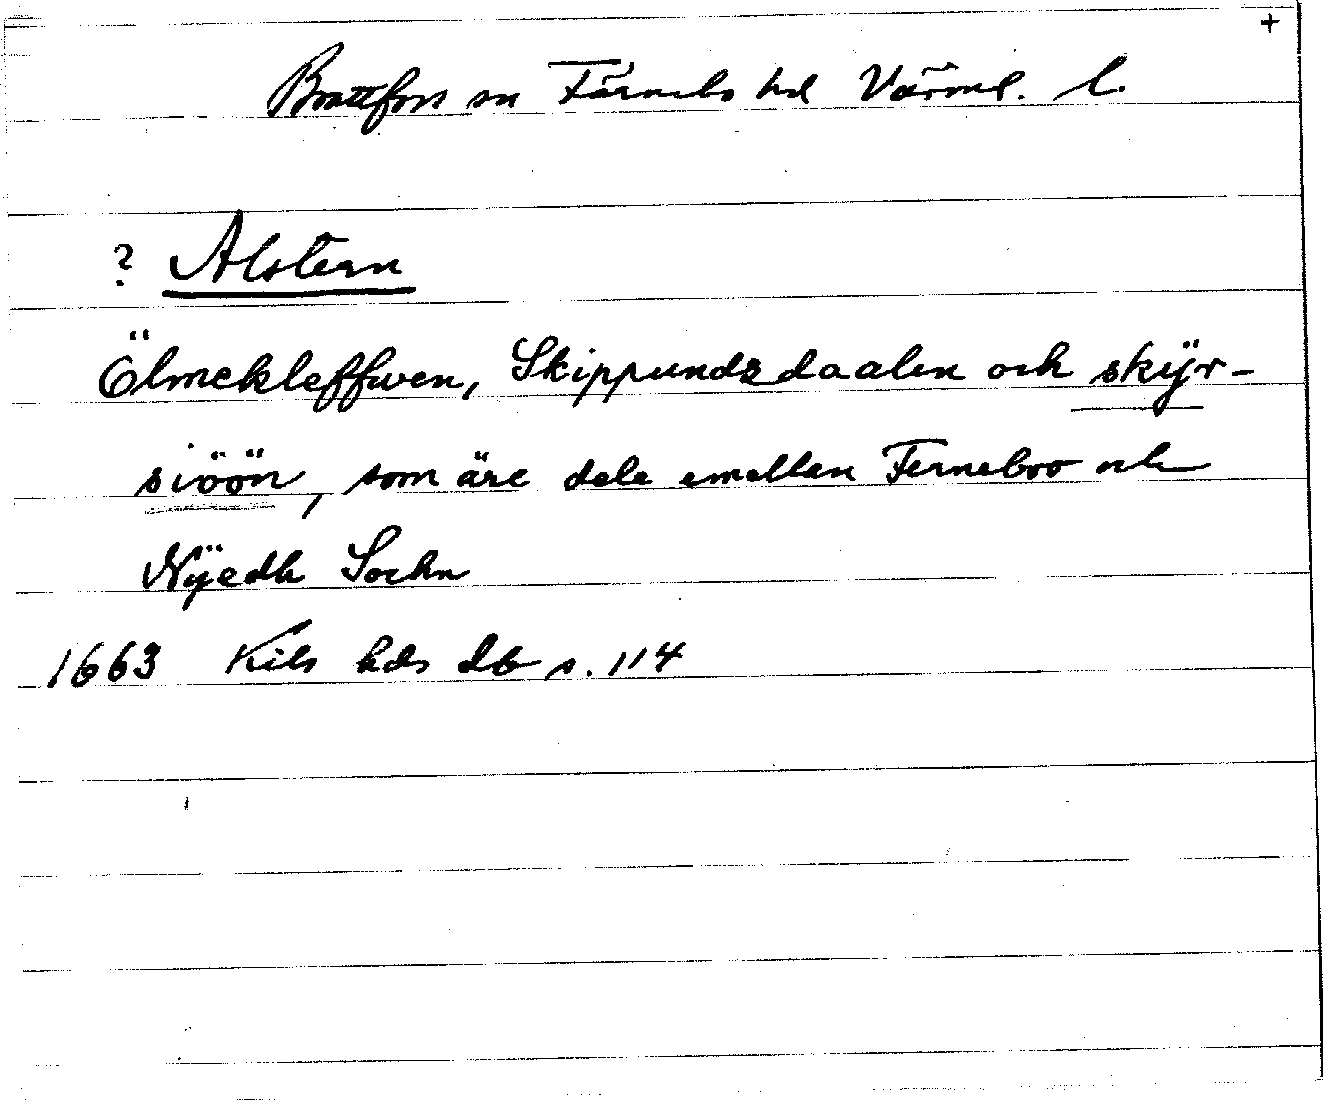 +
Brattfors sn Färnebo hd Värml. l.
? Alstern
Ölmekleffwen, Skippundzdaalen och skÿr-
siöön, som äre dele emellan Ferneboo och
Nÿedh Sochn
1663 Kils hds db s. 114